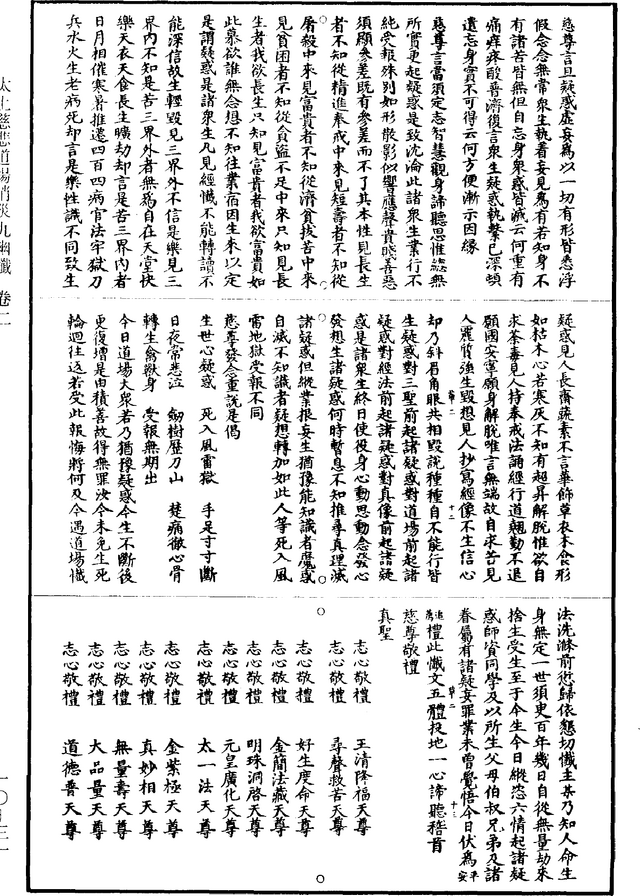 慈尊言且疑惑虛妄為以一切有形皆悉浮
假念念無常眾生執着妄見為有若知身不
有諸苦皆無但自忘身眾惑皆滅云何重有
痛痒疼酸普濟復言眾生疑惑執繫已深頓
遣忘身實不可得云何方便漸示因緣
慈尊言當須定志智慧觀身諦聽思惟愆無
所實更起疑惑是致沉淪此諸眾生業行不
純受報殊别如形散影似響應聲貴賤善惡
須顯參差既有參差而不了其本性見長生
者不知從精進奉戒中來見短壽者不知從
屠殺中來見富貴者不知從濟貧拔苦中來
見貧困者不知從貪盜不足中來只知見長
生者我欲長生只知見富貴者我欲富貴如
此慕欲誰無念想不知往業宿因生來以定
是謂疑惑是諸眾生凡見經懺不能轉讀不
能深信故生輕毀見三界外不信是樂見三
界內不知是苦三界外者無為自在天堂快
樂天衣天食長生曠劫却言是苦三界內者
日月相催寒暑推遷四百四病官法牢獄刀
兵水火生老病死却言是樂性識不同致生
疑惑見人長齋蔬素不言華飾草衣木食形
如枯木心若寒灰不知有超昇解脫惟欲自
求荼毒見人持奉戒法誦經行道翹勤不退
願國安寧願身解脫唯言無端故自求苦見
人罷貧強生毀想見人抄寫經像不生信心
却乃斜眉角眼共相毀說種種自不能行皆
生疑惑對三聖前起諸疑惑對道場前起諸
疑惑對經法前起諸疑惑對真像前起諸疑
惑是諸眾生終日使役身心動思動念發心
發想生諸疑惑何時暫息不知推尋真理滅
諸疑惑但縱業根妄生猶豫能知識者魔惑
自滅不知識者疑想轉加如此人等死入風
雷地獄受報不同
慈尊發念重說是偈
生世心疑惑　死入風雷獄　手足寸寸斷
日夜常悲泣　劒樹歷刀山　楚痛徹心骨
轉生禽獸身　受報無期出
今日道場大眾若乃猶豫疑惑今生不斷後
更復增是由積善故得無罪汝今未免生死
輪迴往返若受此報悔將何及今遇道場懺
法洗滌前愆歸依懇切懺主某乃知人命生
身無定一世須臾百年幾日自從無量劫來
捨生受生至于今生今日縱恣六情起諸疑
惑師資同學及以所生父母伯叔兄弟及諸
眷屬有諸疑妄罪業未曾覺悟今日伏為
禮此懺文五體投地一心諦聽稽首
慈尊敬禮
真聖
志心敬禮　王清隆福天尊
志心敬禮　尋聲救苦天尊
志心敬禮　好生度命天尊
志心敬禮　金簡法藏天尊
志心敬禮　明珠洞啓天尊
志心敬禮　元皇廣化天尊
志心敬禮　太一法天尊
志心敬禮　金紫極天尊
志心敬禮　真妙相天尊
志心敬禮　無量壽天尊
志心敬禮　大品量天尊
志心敬禮　道德普天尊
太上慈悲道場消災九幽懺　卷二